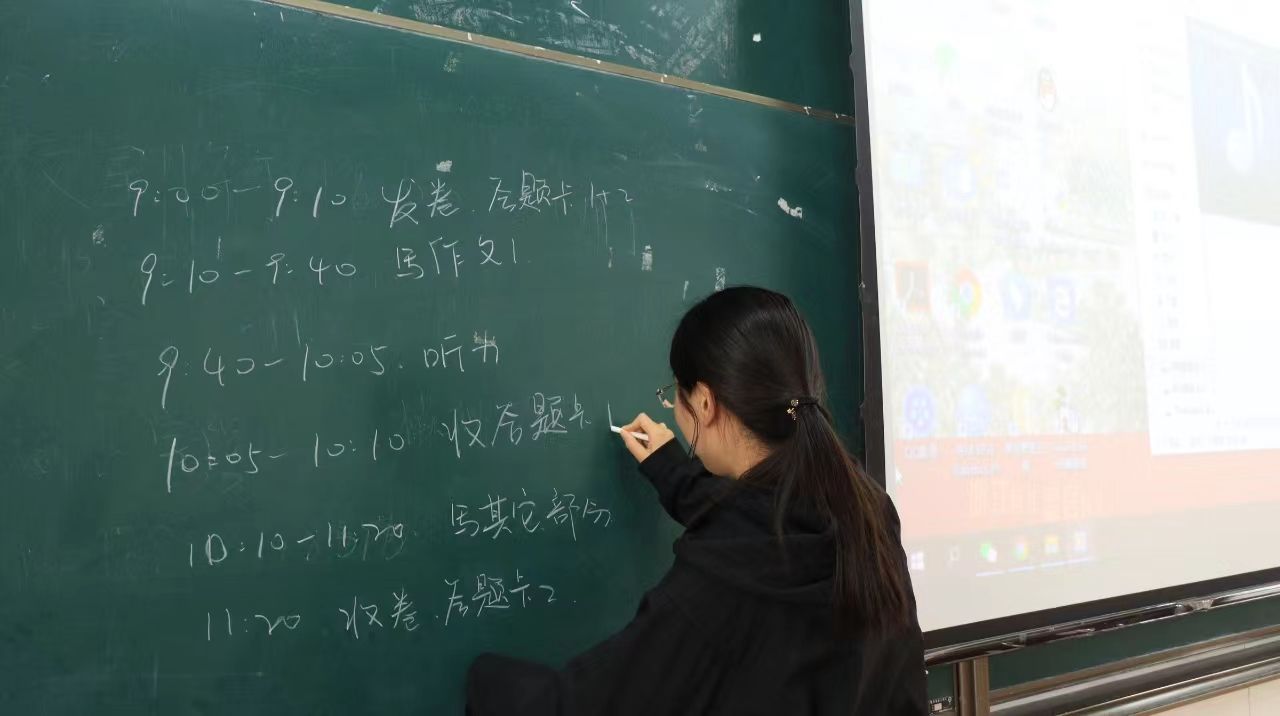 9:00-9:10 发卷.答题卡1+2
9:10-9:40 写作文1.
9:40-10:05.听力
10:05-10:10 收答题卡1
10:10-11:20 写其它部分
11:20 收卷.答题卡2.